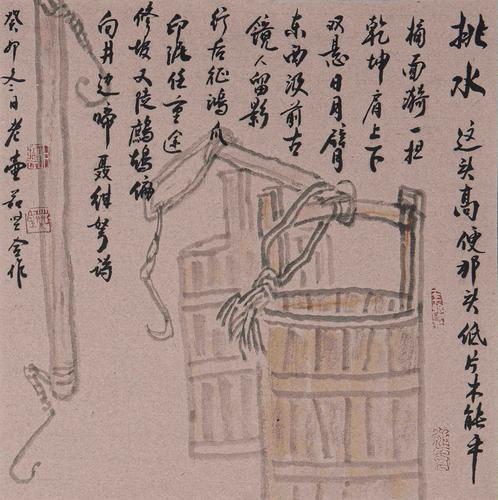 挑水 这头高便那头低片木能平
桶面漪一担
乾坤肩上下
双悬日月臂
东西汲前古
镜人留影
行后征鸿爪
印泥任重途
修坡又陡鹧鸪偏
向井边啼 聂绀弩诗
癸卯冬日老壶合作